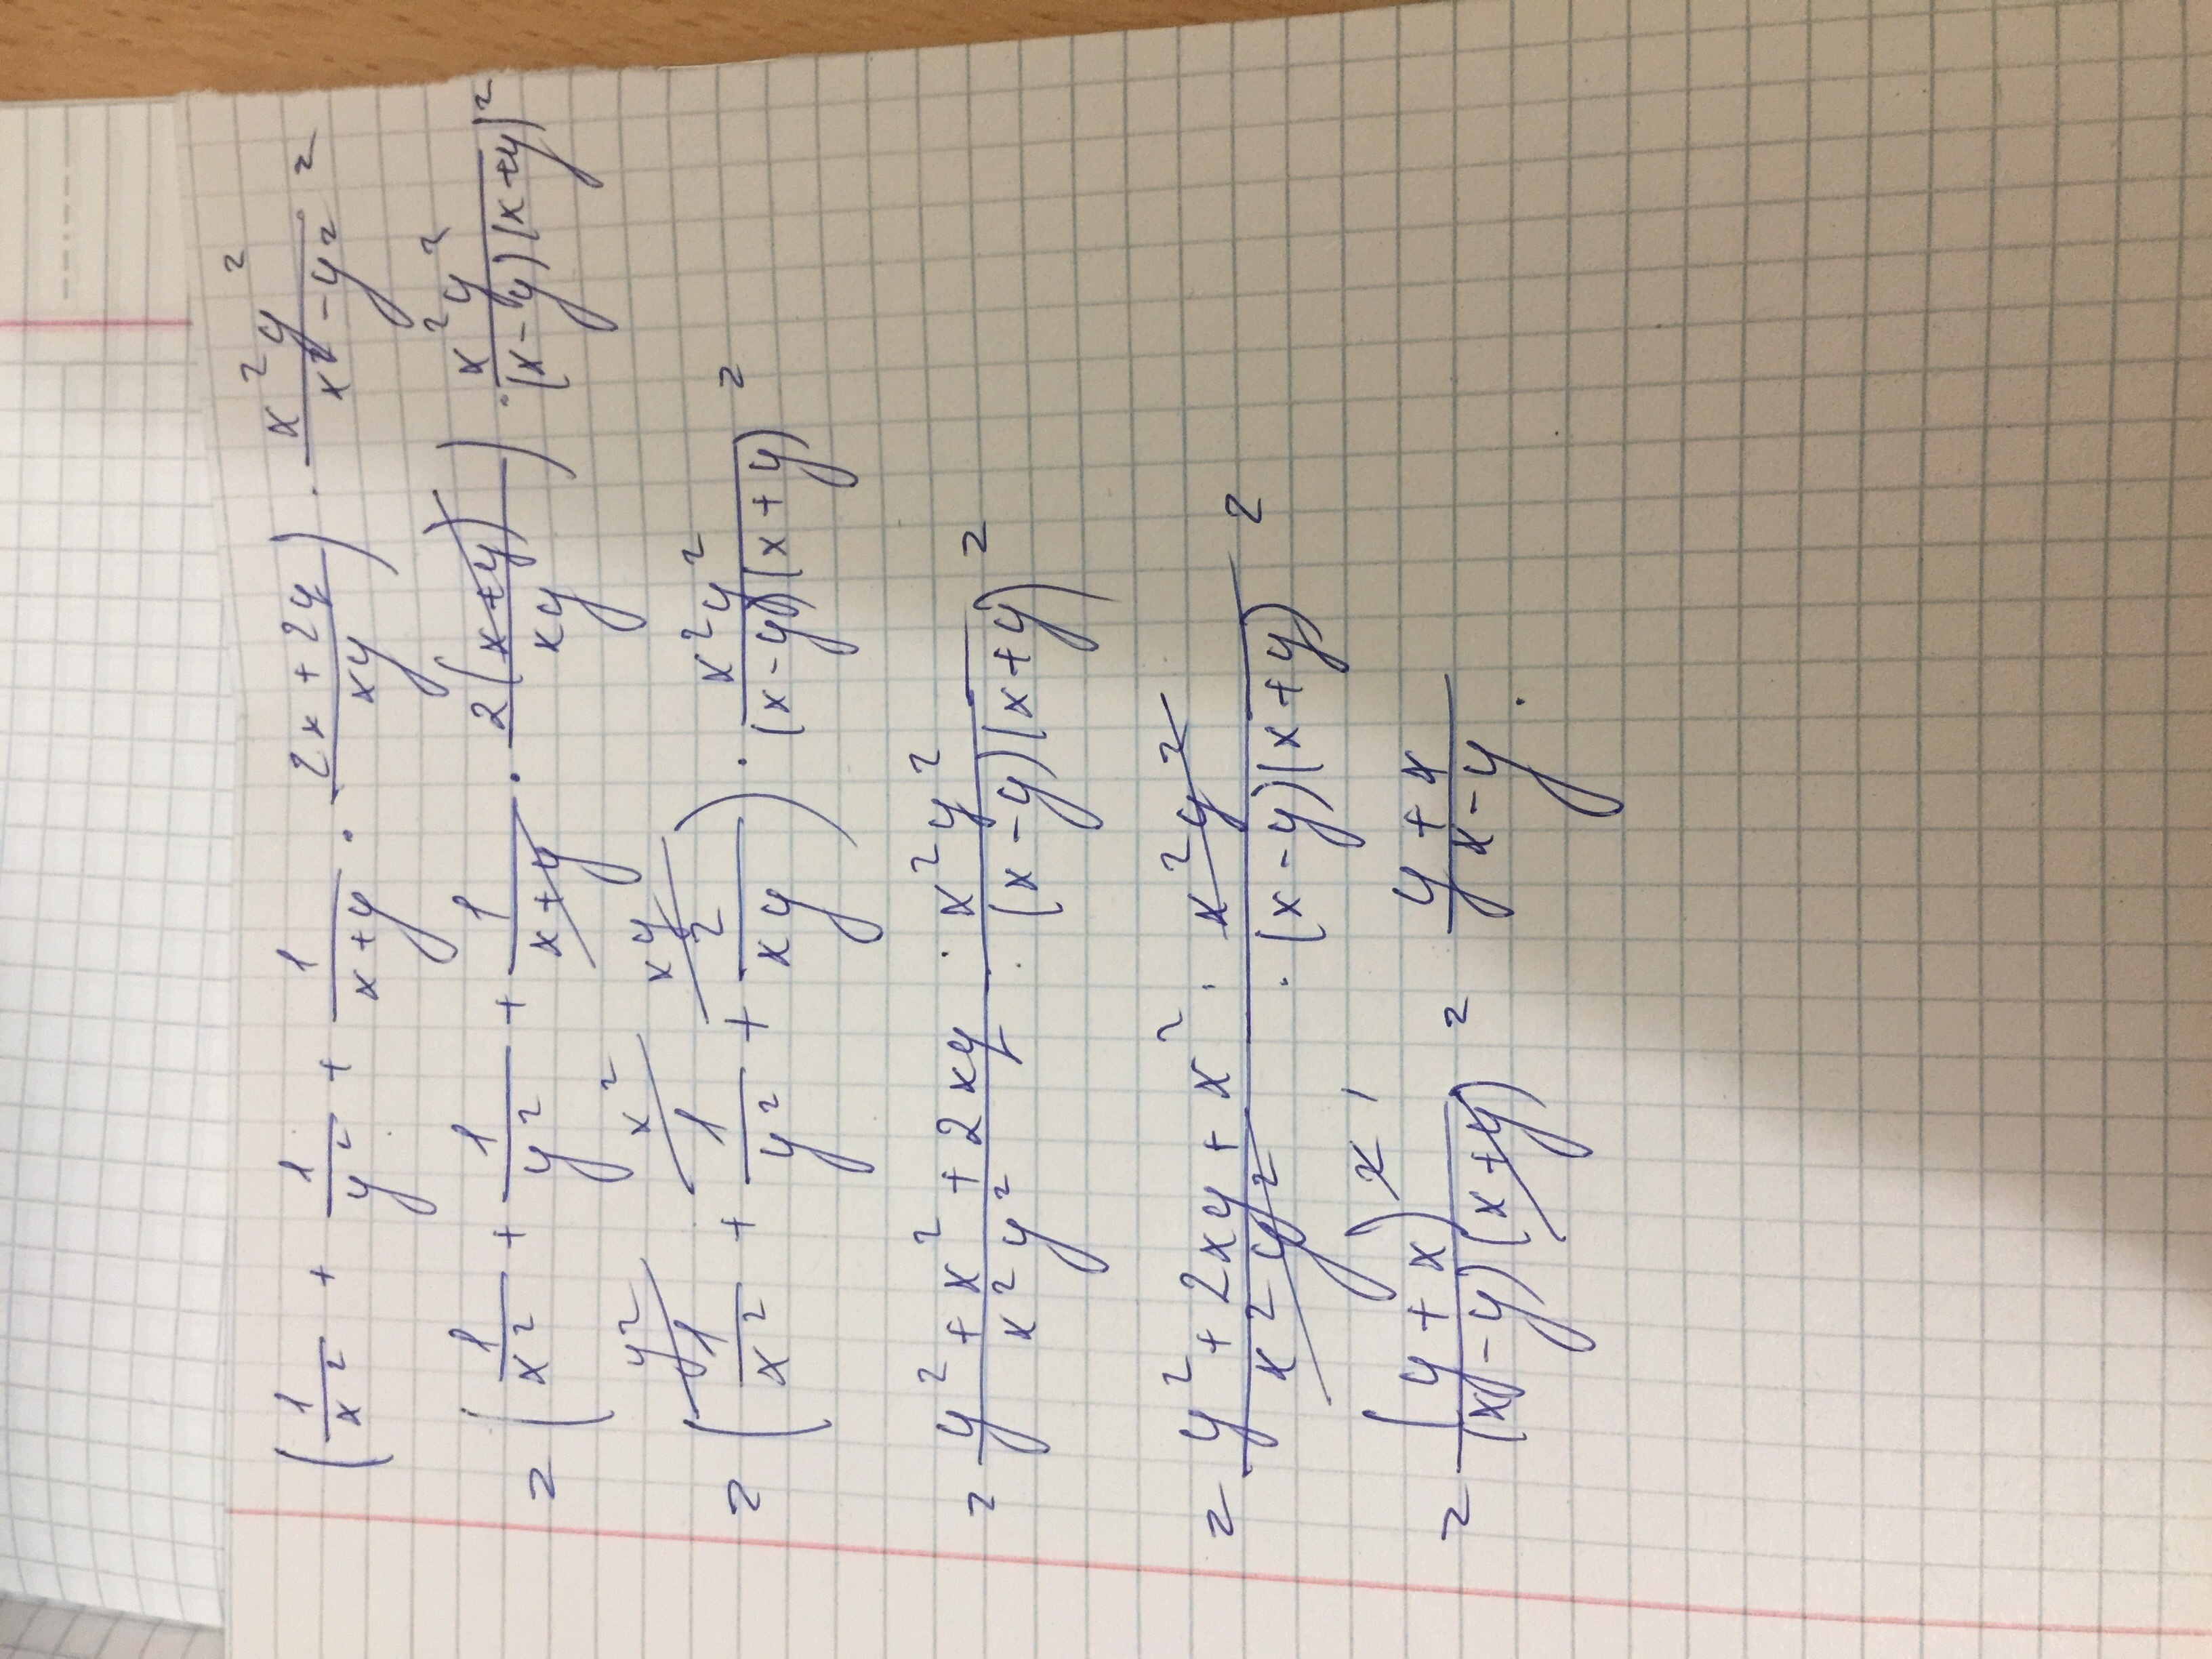 (1/x² + 1/y² + 1/(x+y) · (2x+2y)/(xy)) · x²y²/(x²-y²) =
= (1/x² + 1/y² + 1/(x+y) · 2(x+y)/(xy)) · x²y²/((x-y)(x+y)) =
y² x² xy
= (1/x² + 1/y² + 2/(xy)) · x²y²/((x-y)(x+y)) =
= (y²+x²+2xy · x²y²)/(x²y² · (x-y)(x+y)) =
= (y²+2xy+x² · x²y²)/(x²y² · (x-y)(x+y)) =
= (y+x)² ¹/((x-y)(x+y)) = (y+x)/(x-y).